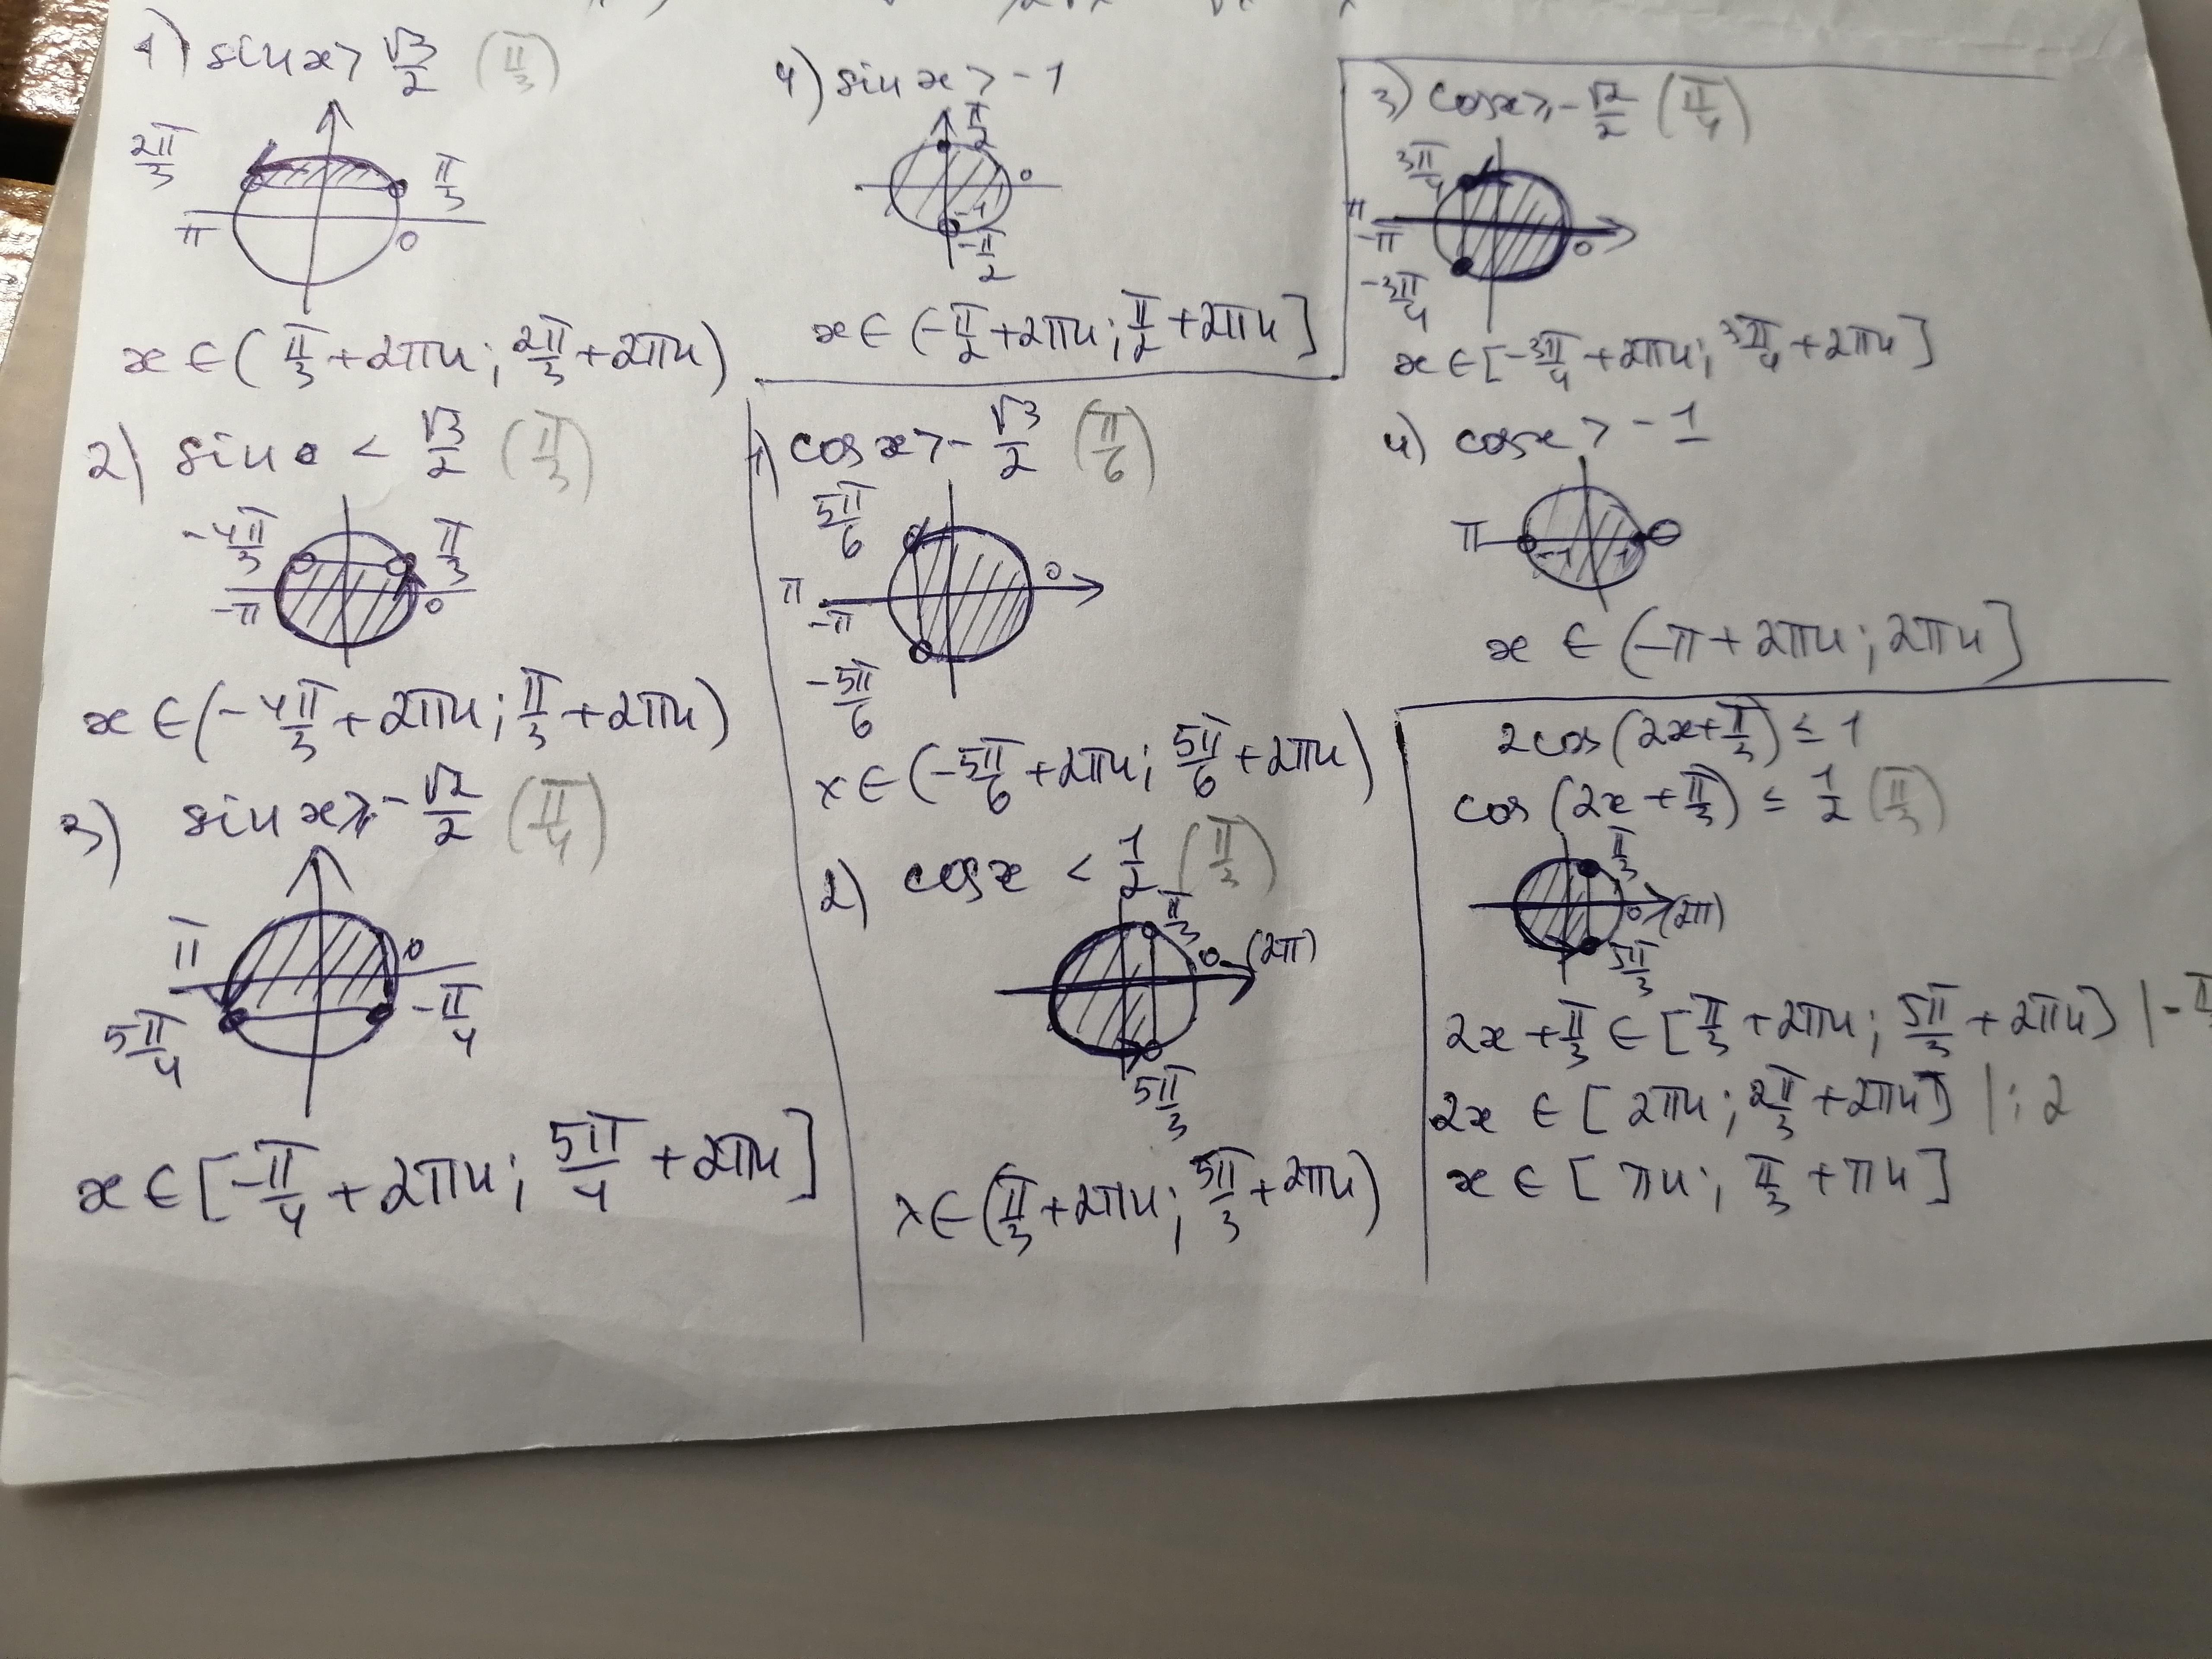 1) sin x > √3/2 (π/3)
2π/3
π/3
π
0
x ∈ (π/3 + 2πn; 2π/3 + 2πn)
2) sin x < √3/2 (π/3)
-4π/3
π/3
-π
0
x ∈ (-4π/3 + 2πn; π/3 + 2πn)
3) sin x ≥ -√2/2 (π/4)
π
0
5π/4
-π/4
x ∈ [-π/4 + 2πn; 5π/4 + 2πn]
4) sin x > -1
π/2
0
-1
-π/2
x ∈ (-π/2 + 2πn; π/2 + 2πn]
1) cos x > -√3/2 (π/6)
5π/6
π
0
-π
-5π/6
x ∈ (-5π/6 + 2πn; 5π/6 + 2πn)
2) cos x < 1/2 (π/3)
π/3
0 (2π)
5π/3
x ∈ (π/3 + 2πn; 5π/3 + 2πn)
3) cos x ≥ -√2/2 (π/4)
3π/4
π
-π
0
-3π/4
x ∈ [-3π/4 + 2πn; 3π/4 + 2πn]
4) cos x > -1
π
-1
1
0
x ∈ (-π + 2πn; 2πn]
2cos(2x + π/3) ≤ 1
cos(2x + π/3) ≤ 1/2 (π/3)
π/3
0 (2π)
5π/3
2x + π/3 ∈ [π/3 + 2πn; 5π/3 + 2πn] | -π
2x ∈ [2πn; 2π/3 + 2πn] | : 2
x ∈ [πn; π/3 + πn]